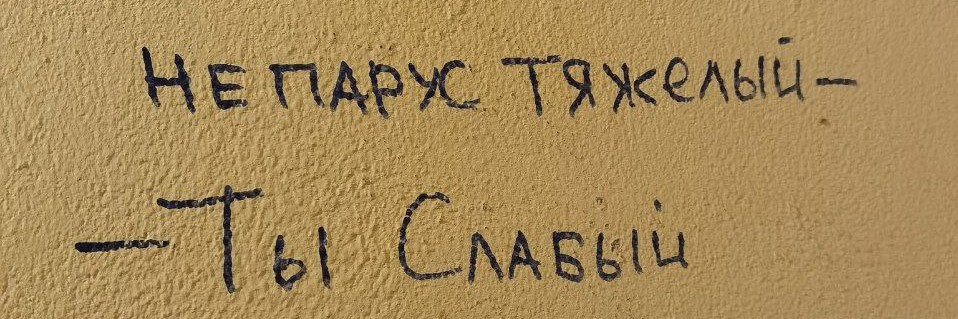 НЕ ПАРУС ТЯЖЕЛЫЙ-
-Ты Слабый